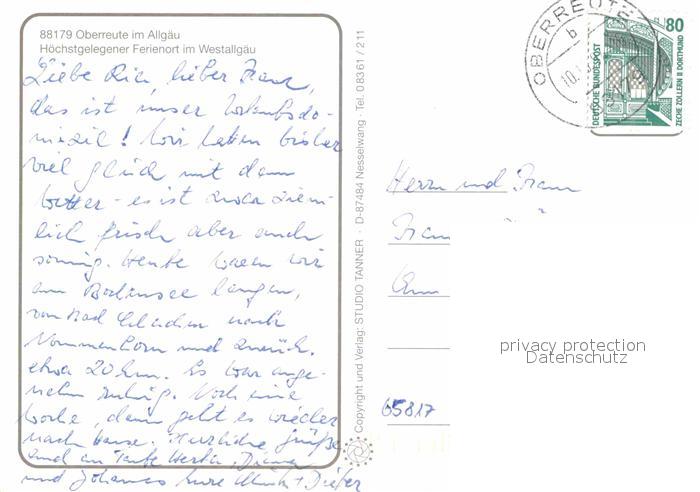 88179 Oberreute im Allgäu
Höchstgelegener Ferienort im Westallgäu
Liebe Ria, lieber Franz,
das ist unser Urlaubsdo-
mizil! Wir hatten bisher
viel Glück mit dem
Wetter - es ist zwar ziem-
lich frisch aber auch
sonnig. Heute waren wir
am Bodensee langen,
von Bad Schachen nach
Nonnenhorn und zurück.
etwa 20 km. Es war ange-
nehm ruhig. Noch eine
Woche, dann geht es wieder
nach Hause. Herzliche Grüße
und an Tante Herta,
und Johannes Eure + Dieter
Copyright und Verlag: STUDIO TANNER · D-87484 Nesselwang · Tel. 0 83 61 / 2 11
OBERREUTE
b
10.
80
DEUTSCHE BUNDESPOST
ZECHE ZOLLERN II DORTMUND
Herrn und Frau
privacy protection
Datenschutz
65817